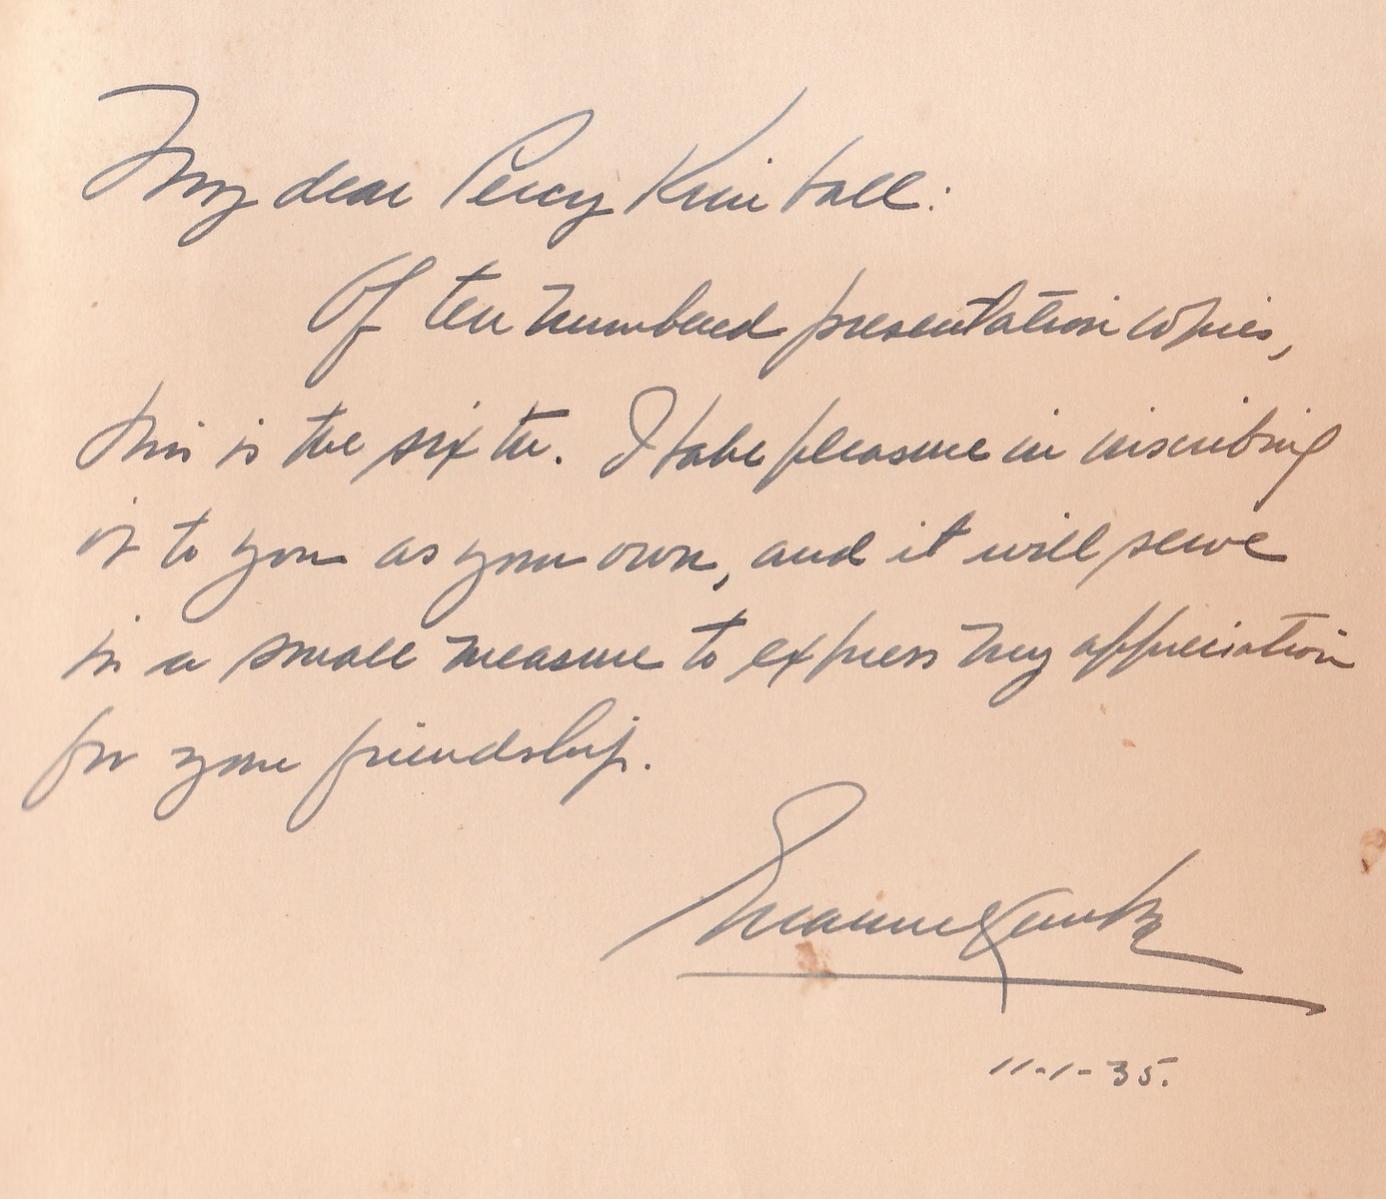 My dear Percy Kimball:
Of ten numbered presentation copies,
this is the sixth. I take pleasure in inscribing
it to you as your own, and it will serve
in a small measure to express my appreciation
for your friendship.
11-1-35.